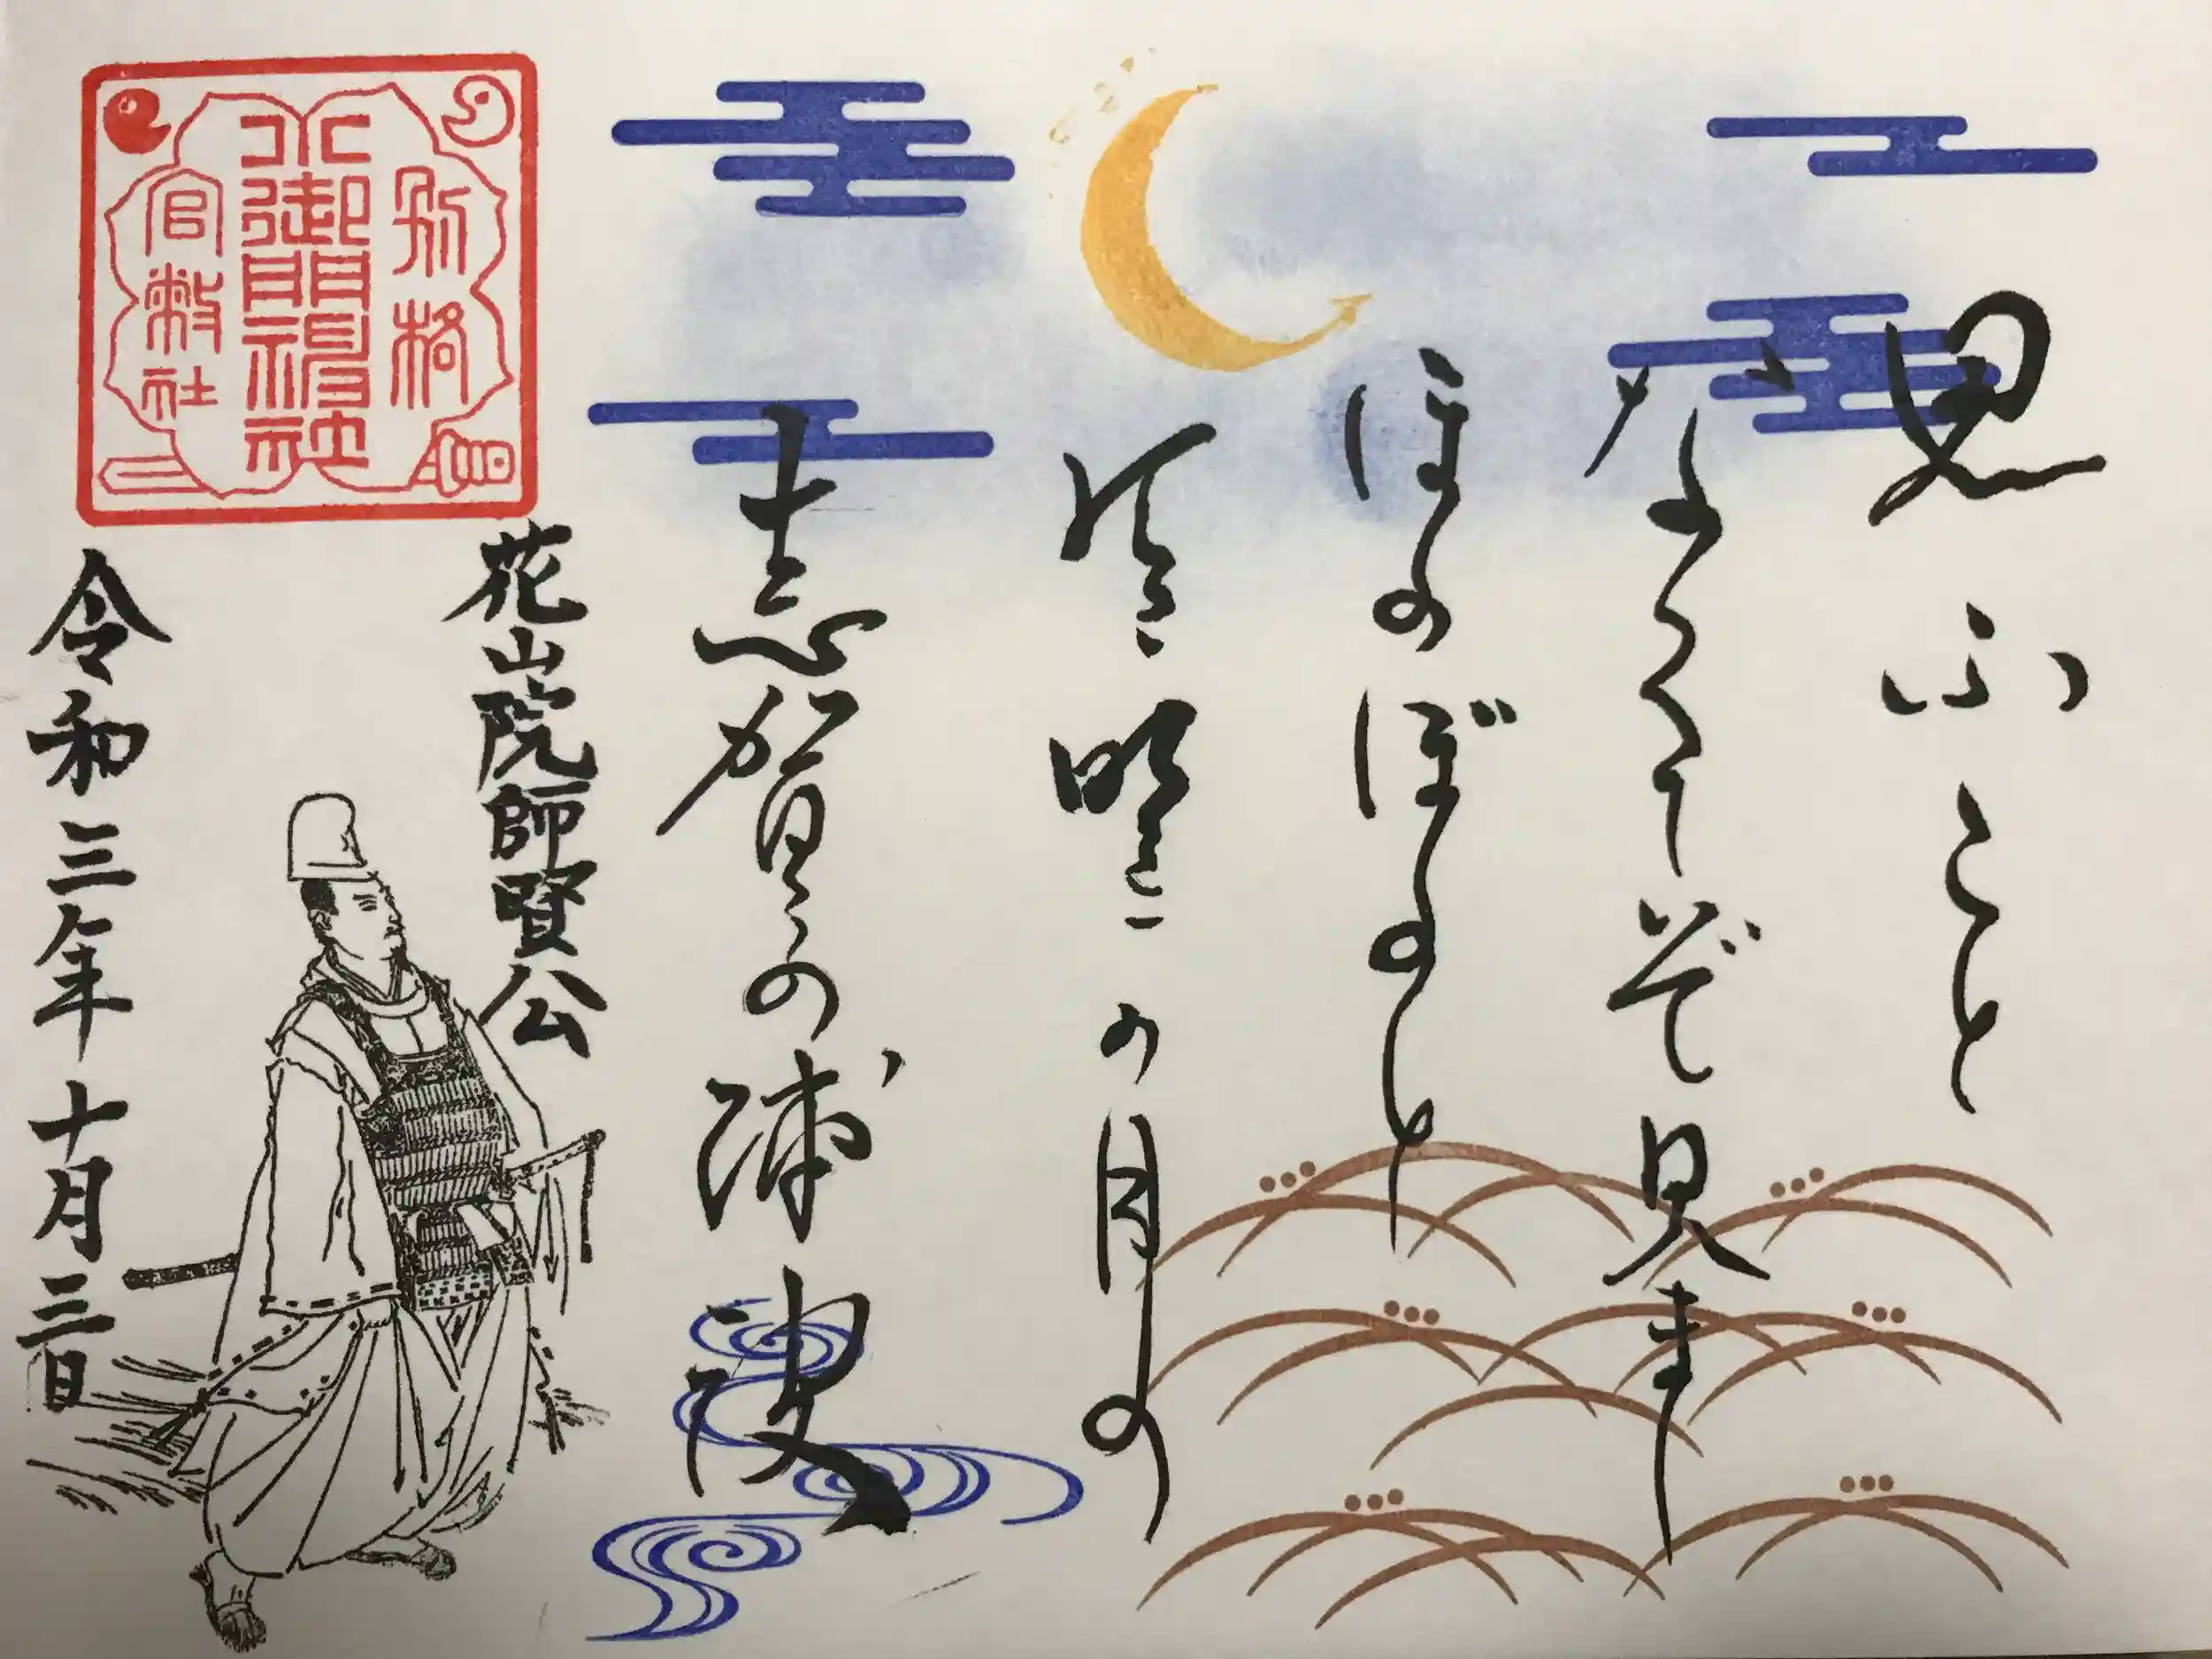 思ふこと
なくてぞ見まし
ほのぼのと
有明の月の
志賀の浦波
花山院師賢公
令和三年十月三日
別格
小御門神社
官幣社